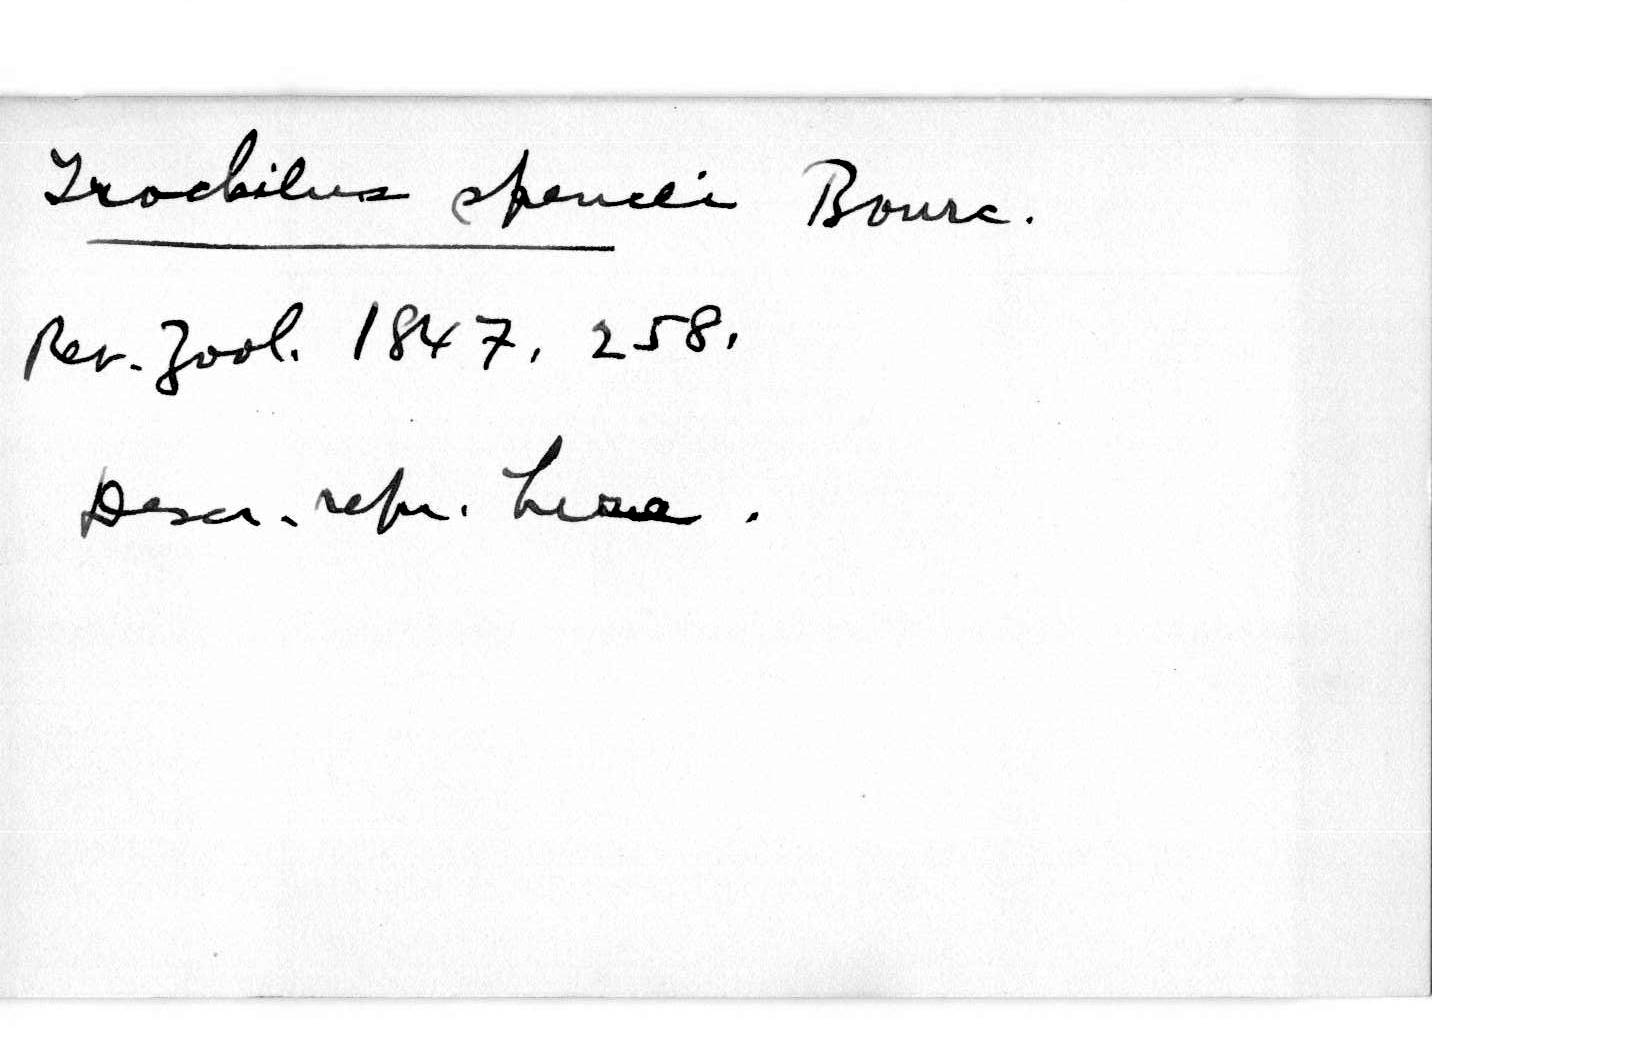 Trochilus spencei Bourc.
Rev. Zool. 1847, 258.
Descr. repr.